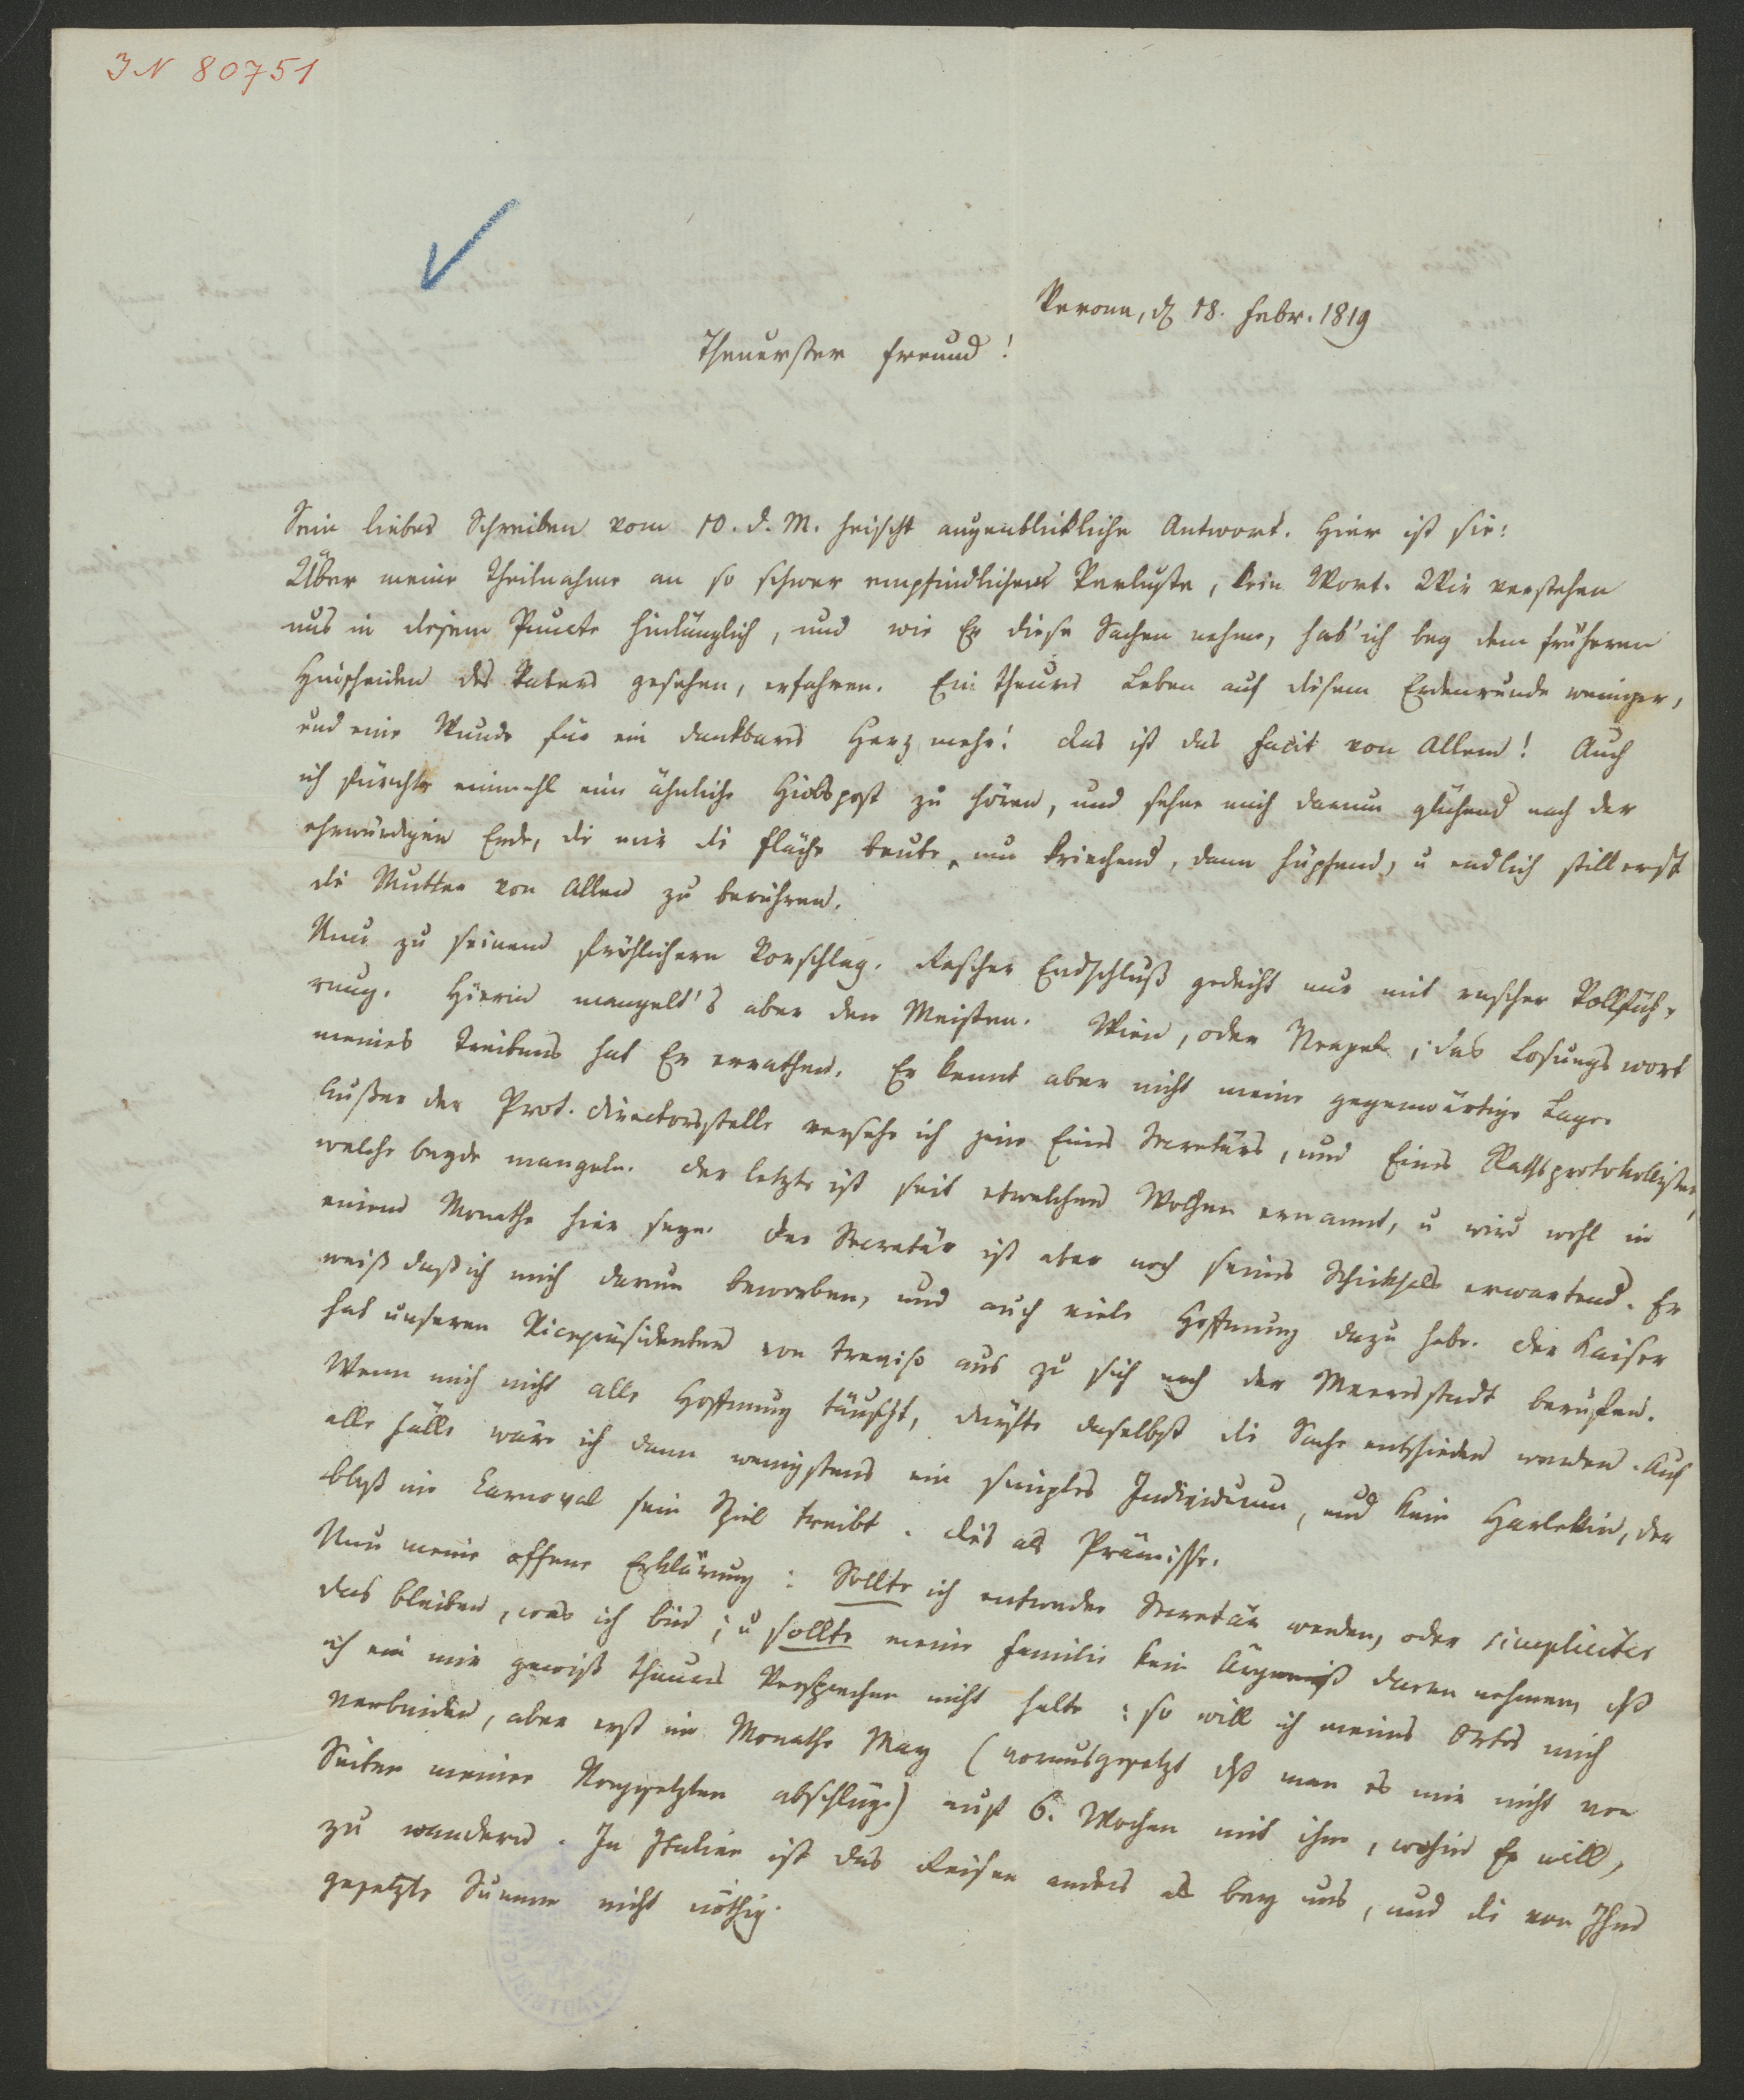 IN 80751
Verona, d 18. Febr. 1819
Theuerster Freund!
Sein liebes Schreiben vom 10. d. M. heischt augenblickliche Antwort. Hier ist sie:
Über meine Theilnahme an so schwer empfindlichem Verluste, kein Wort. Wir verstehen
uns in diesem Puncte hinlänglich, und wie Er diese Sachen nehme, hab' ich bey dem früheren
Hinscheiden des Vaters gesehen, erfahren. Ein theures Leben auf diesem Erdenrunde weniger,
und eine Wunde für ein dankbares Herz mehr! das ist das Facit von Allem! Auch
ich fürchte einmahl eine ähnliche Hiobspost zu hören, und sehne mich darum glühend nach der
ehrwürdigen Erde, die mir die Fläche beut, nun kriechend, dann hüpfend, u endlich still erst
die Mutter von Allen zu berühren.
Nun zu seinem fröhlichern Vorschlag. Rascher Endschluß gedeiht nur mit rascher Vollfüh-
rung. Hierin mangelt's aber den Meisten. Wien, oder Neapel, das Losungswort
meines Treibens hat Er errathen. Er kennt aber nicht meine gegenwärtige Lage.
Außer der Prot. Directorsstelle versehe ich jene Eines Secretärs, und Eines Rathsprotokollisten,
welche beyde mangeln. Der letzte ist seit etwelchen Wochen ernannt, u wird wohl in
einem Monathe hier seyn. Der Secretär ist aber noch seines Schicksals erwartend. Er
weiß daß ich mich darum beworben, und auch viele Hoffnung dazu habe. Der Kaiser
hat unseren Vicepräsidenten von Treviso aus zu sich nach der Meeresstadt berufen.
Wenn mich nicht alle Hoffnung täuscht, dürfte daselbst die Sache entschieden werden. Auf
alle Fälle wäre ich dann wenigstens ein simples Individuum, und kein Harlekin, der
bloß im Carneval sein Spiel treibt. Dies als Prämisse.
Nun meine offene Erklärung: Sollte ich entweder Secretär werden, oder simpliciter
das bleiben, was ich bin; u sollte meine Familie kein Ärgerniß daran nehmen, dß
ich ein mir gewiß theures Versprechen nicht halte: so will ich meines Ortes mich
verbinden, aber erst im Monathe May (vorausgesetzt dß man es mir nicht von
Seiten meiner Vorgesetzten abschlüge) auf 6. Wochen mit ihm, wohin Er will,
zu wandern. In Italien ist das Reisen anders als bey uns, und die von Ihm
gesetzte Summe nicht nöthig.